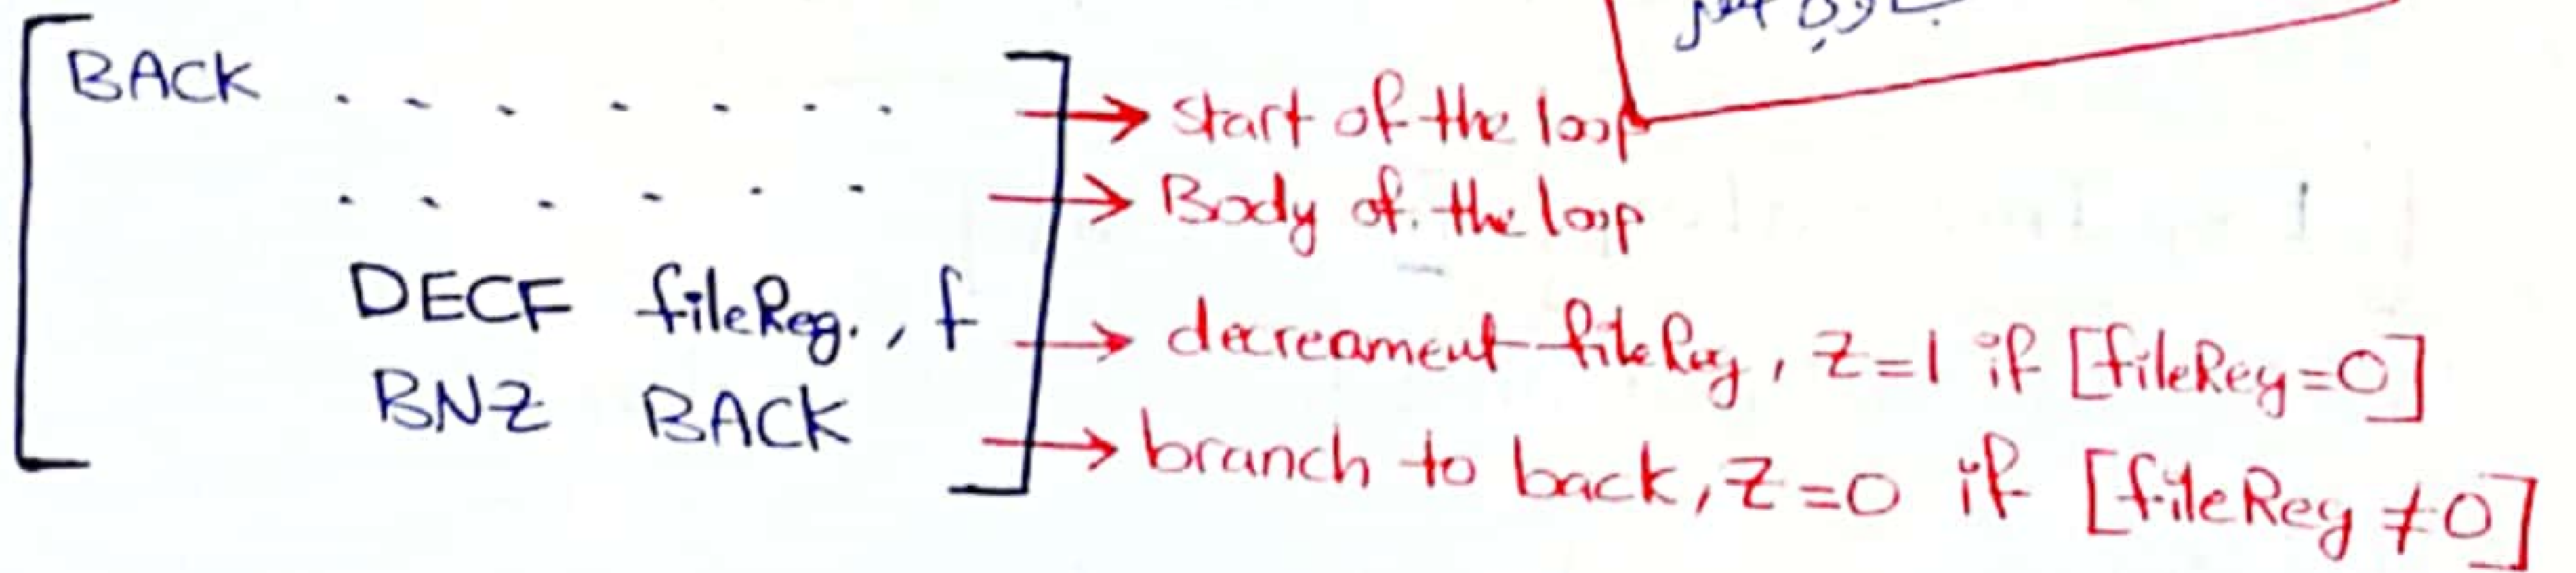 BACK . . . . . . . → start of the loop
. . . . . . → Body of the loop
DECF fileReg. , f → decreament fileReg , Z=1 if [fileReg=0]
BNZ BACK → branch to back , Z=0 if [fileReg ≠0]